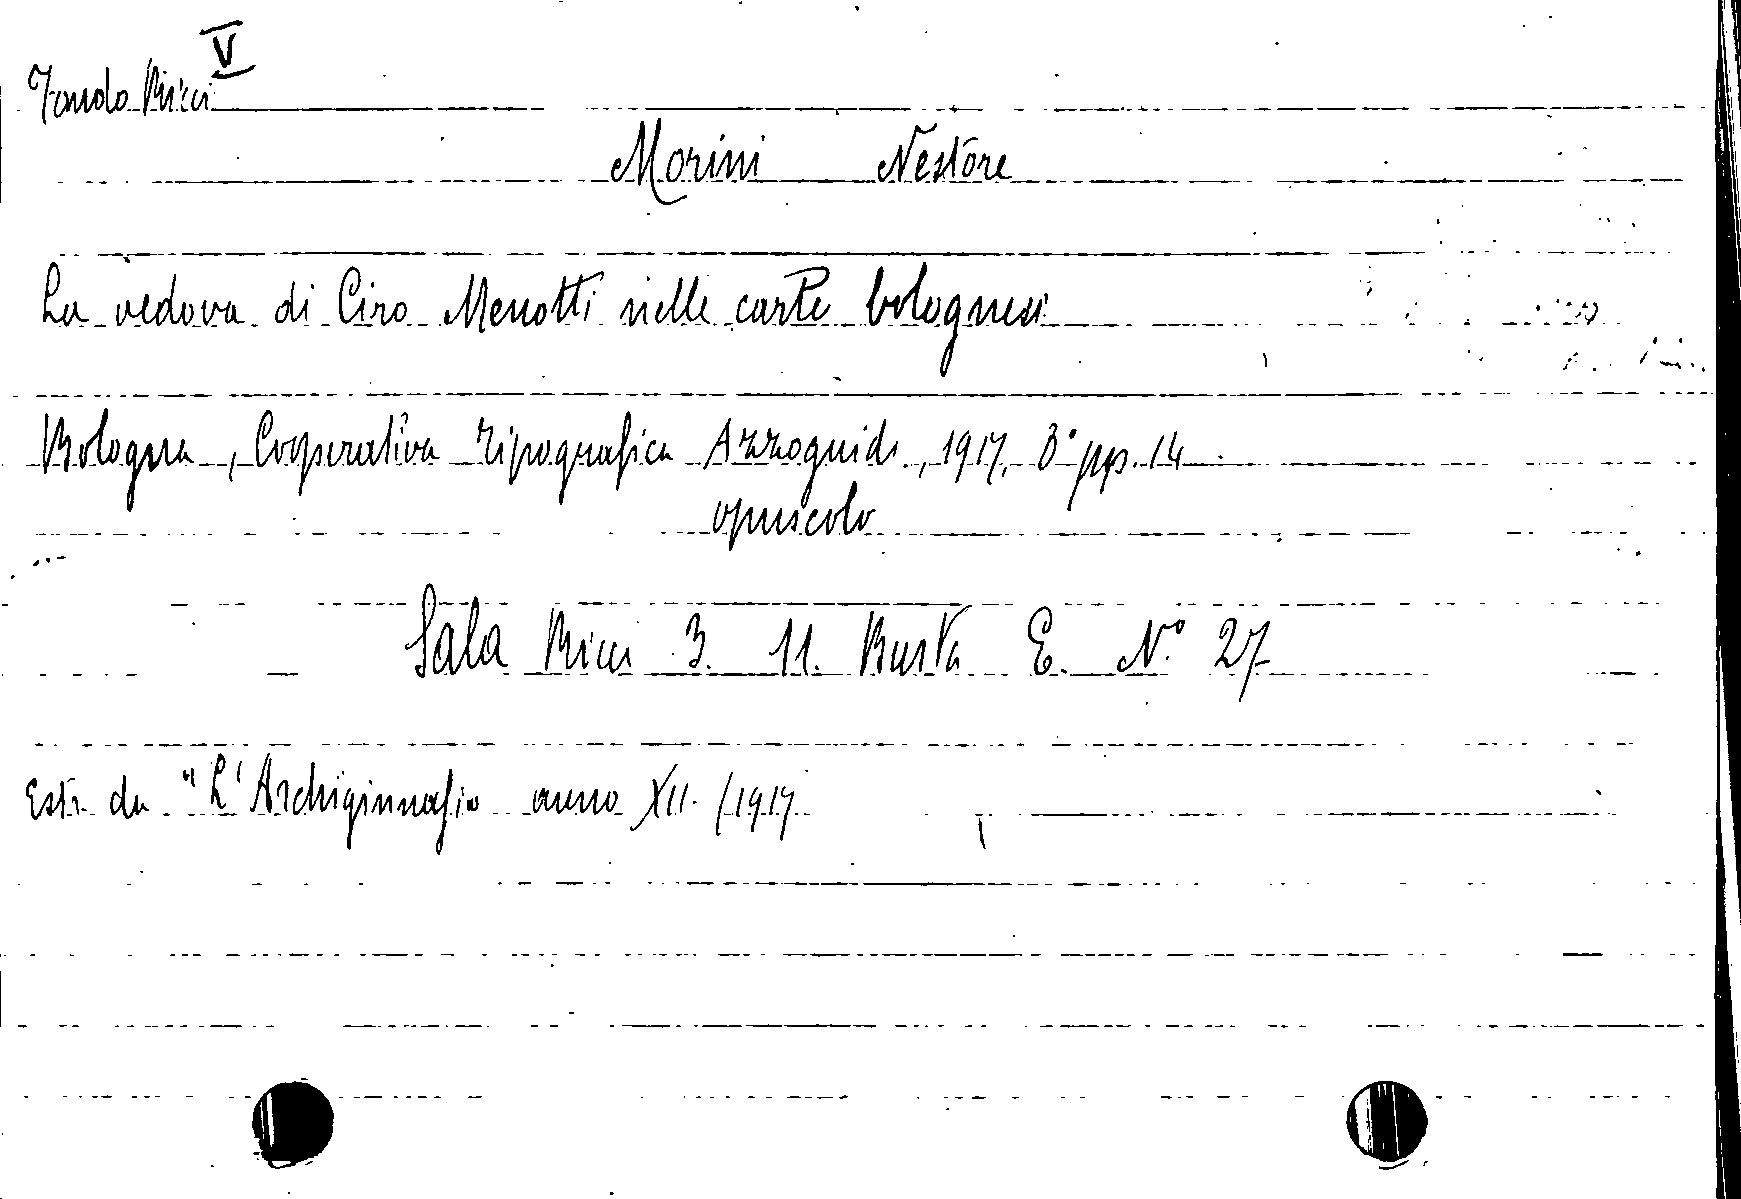 V
Fondo Ricci
Morini Nestore
La vedova di Ciro Menotti nelle carte bolognesi
Bologna, Cooperativa Tipografica Azzoguidi, 1917, 8° pp. 14
opuscolo
Sala Ricci 3. 11. Busta E. N° 27
Estr. da "L'Archiginnasio anno XII. (1917